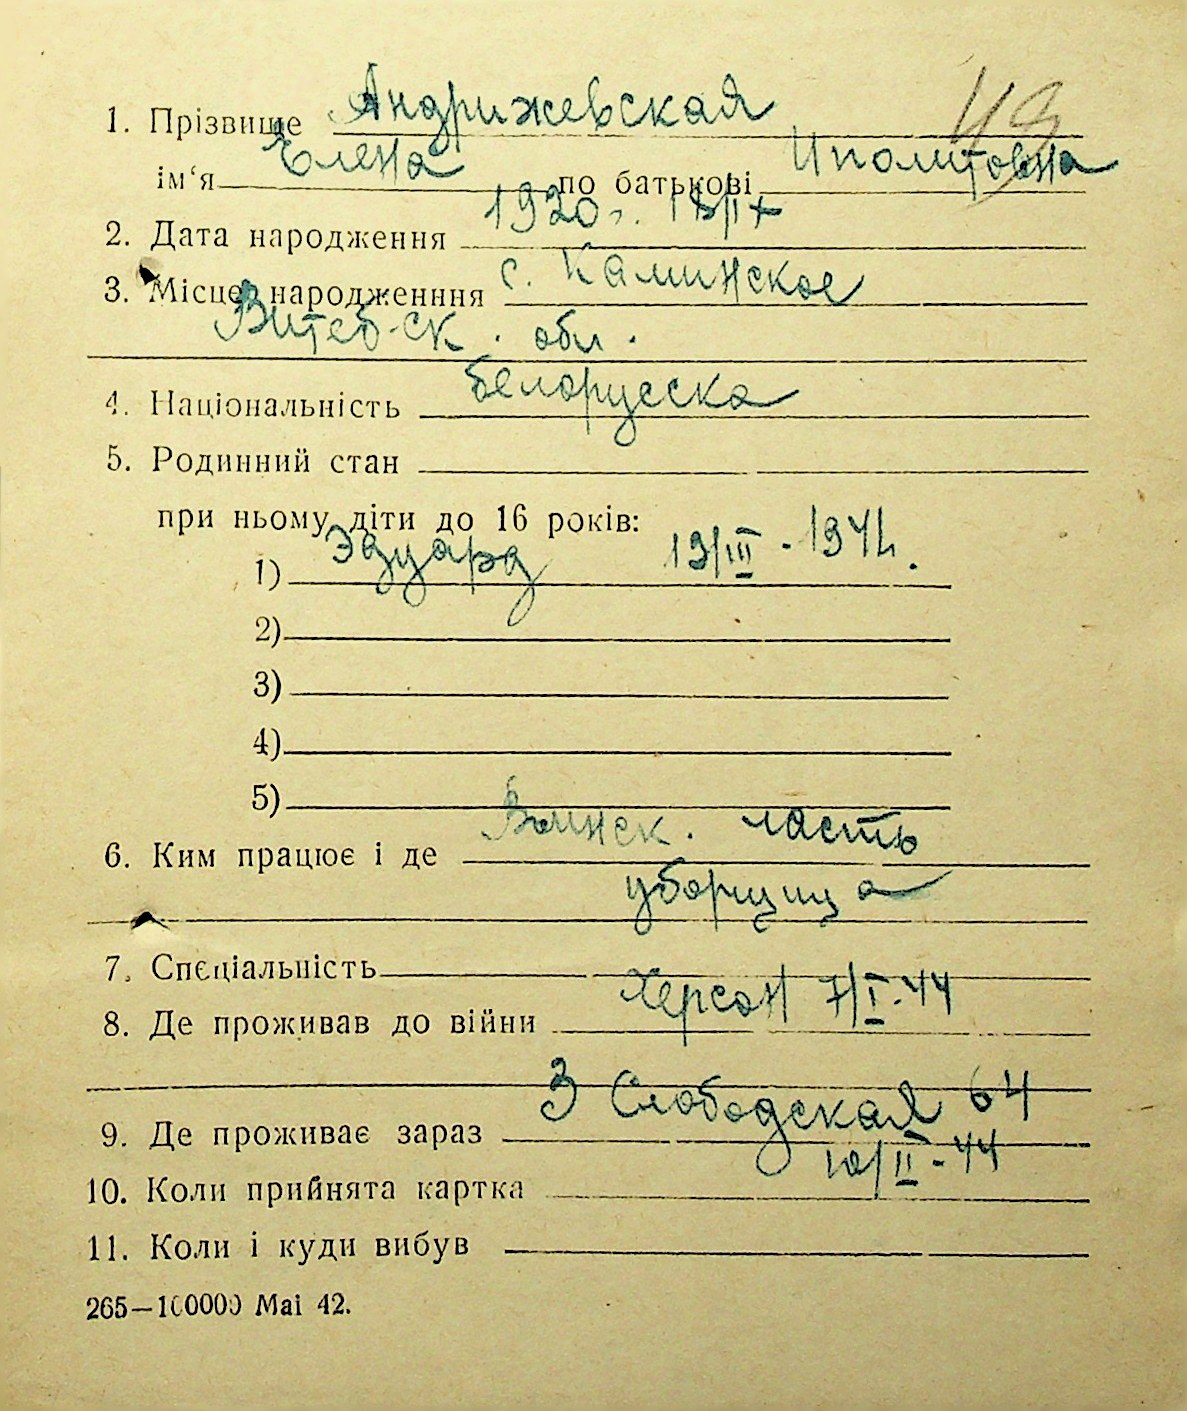 1. Прізвище Андрижевская
ім‘я Елена по батькові Иполитовна
2. Дата народження 1920 г.
3. Місце народженння с. Каминское
Витеб-ск. обл.
4. Національність белорусска
5. Родинний стан
при ньому діти до 16 років:
1) Эдуард 19/III - 1941.
2)
3)
4)
5)
6. Ким працює і де Воинск. часть
уборщица
7. Спеціальність
8. Де проживав до війни Херсон 7/I-44
9. Де проживає зараз 3 Слободская 64
10. Коли прийнята картка 10/II-44
11. Коли і куди вибув
265—100000 Mai 42.